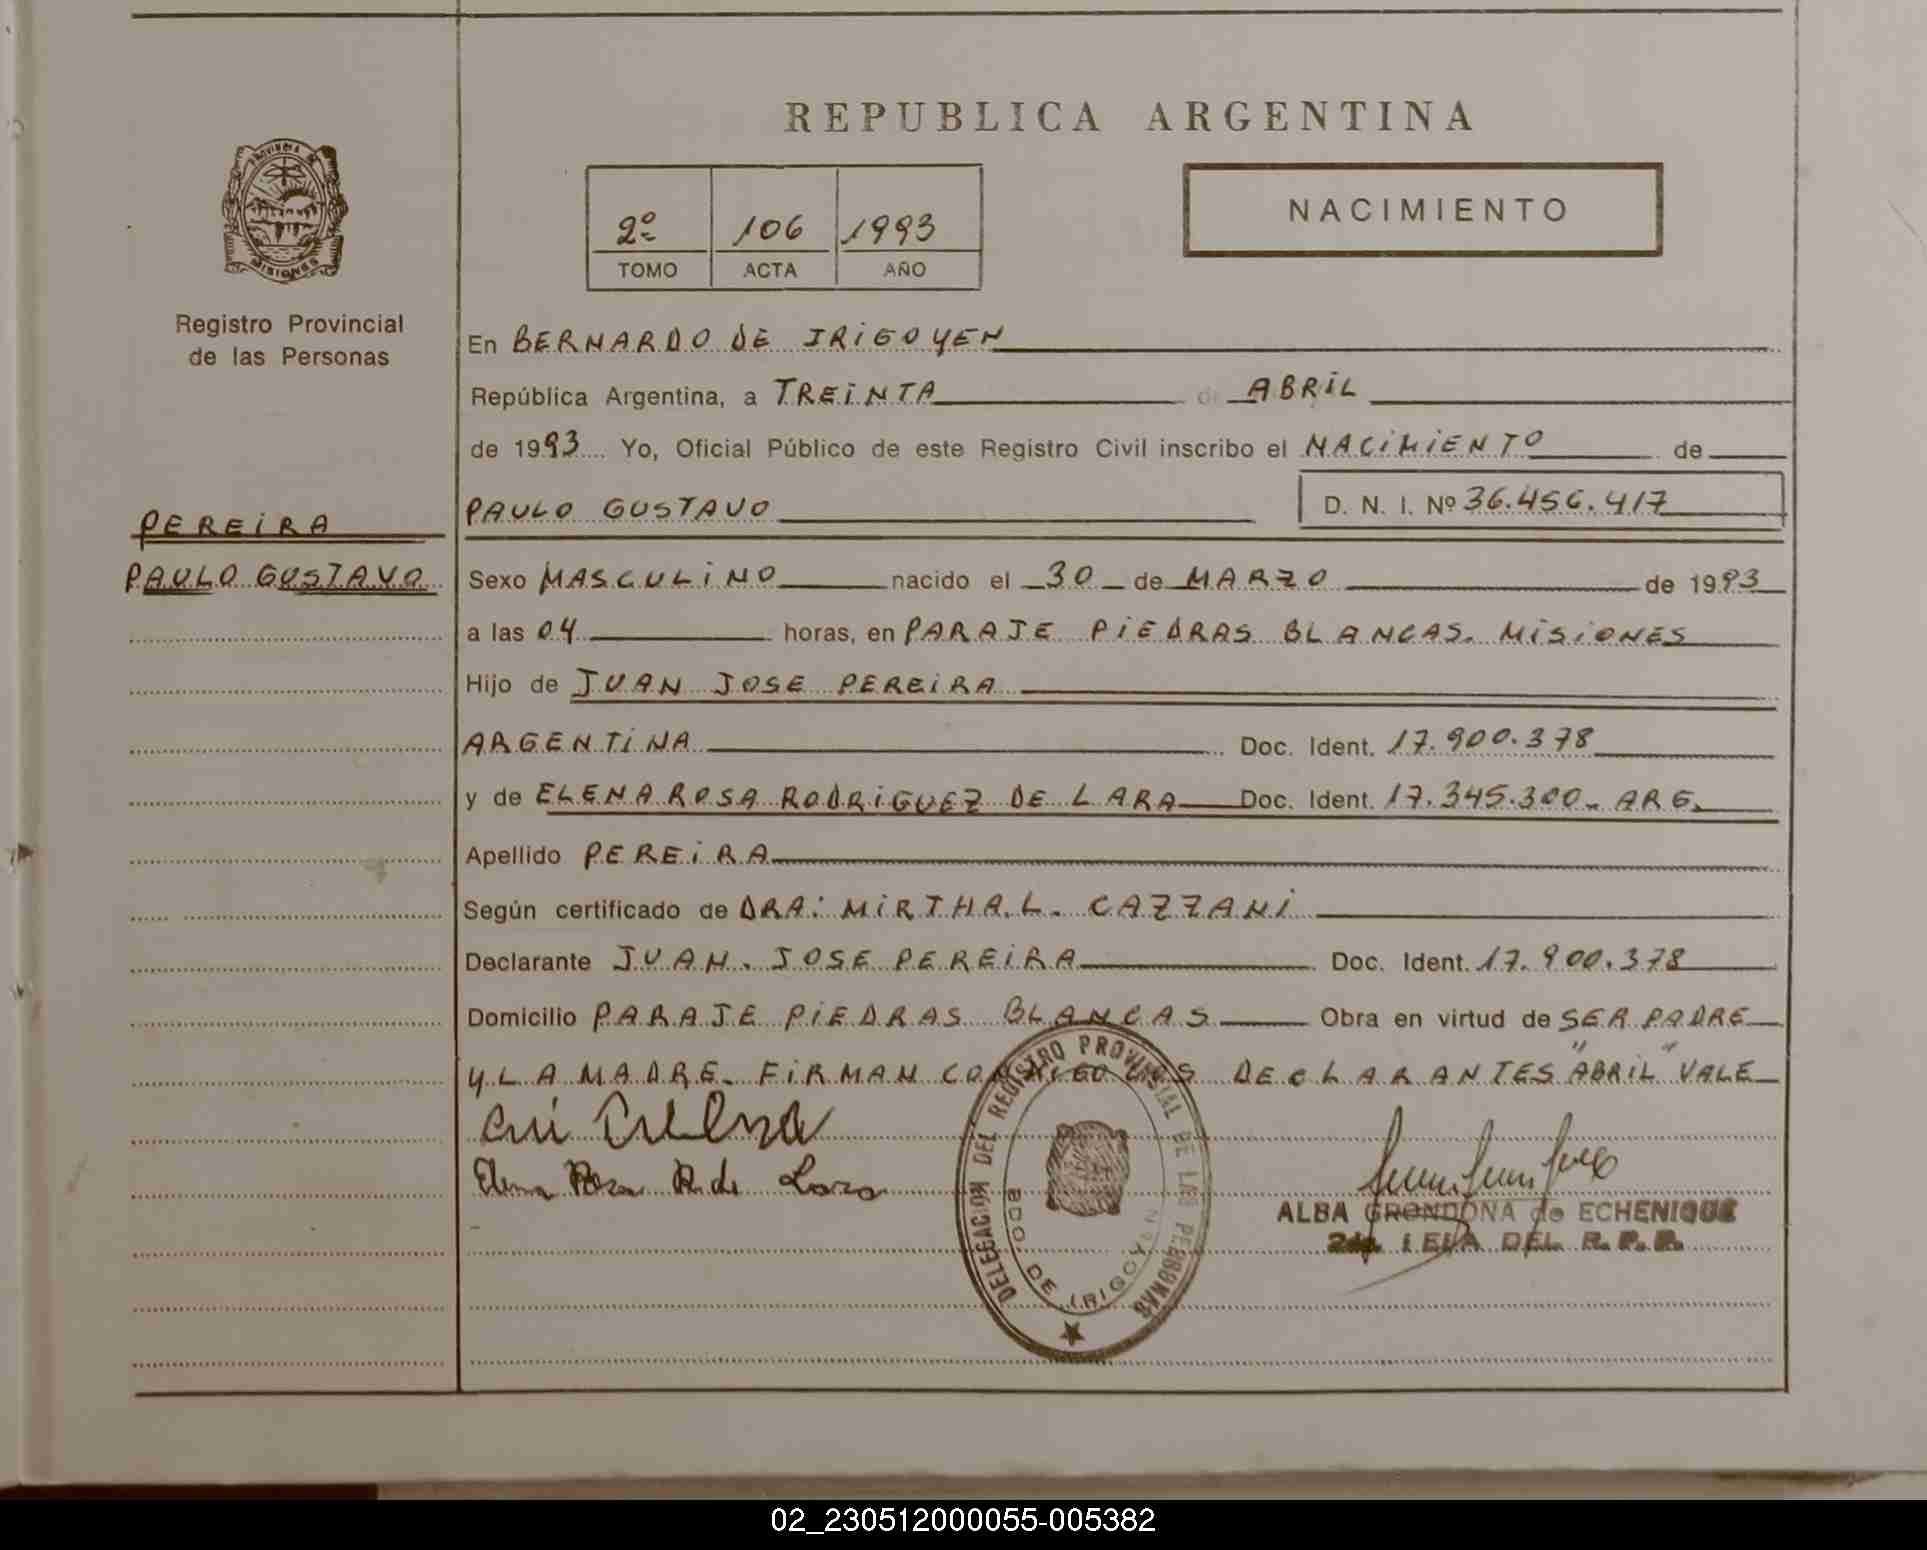 REPUBLICA ARGENTINA
PROVINCIA DE
MISIONES
Registro Provincial
de las Personas
2º 106 1993
TOMO ACTA AÑO
NACIMIENTO
En BERNARDO DE IRIGOYEN
República Argentina, a TREINTA de ABRIL
de 1993 Yo, Oficial Público de este Registro Civil inscribo el NACIMIENTO de
PAULO GUSTAVO D. N. I. Nº 36.456.417
PEREIRA
PAULO GUSTAVO
Sexo MASCULINO nacido el 30 de MARZO de 1993
a las 04 horas, en PARAJE PIEDRAS BLANCAS. MISIONES
Hijo de JUAN JOSE PEREIRA
ARGENTINA Doc. Ident. 17.900.378
y de ELENA ROSA RODRIGUEZ DE LARA Doc. Ident. 17.345.300. ARG.
Apellido PEREIRA
Según certificado de DRA: MIRTHA.L. CAZZANI
Declarante JUAN. JOSE PEREIRA Doc. Ident. 17.900.378
Domicilio PARAJE PIEDRAS BLANCAS Obra en virtud de SER PADRE
Y LA MADRE. FIRMAN CONMIGO LOS DECLARANTES "ABRIL" VALE
Elena Rosa R. de Lara
DELEGACION DEL REGISTRO PROVINCIAL DE LAS PERSONAS
BDO DE IRIGOYEN
ALBA GRONDONA de ECHENIQUE
DEL R. P. P.
02_230512000055-005382